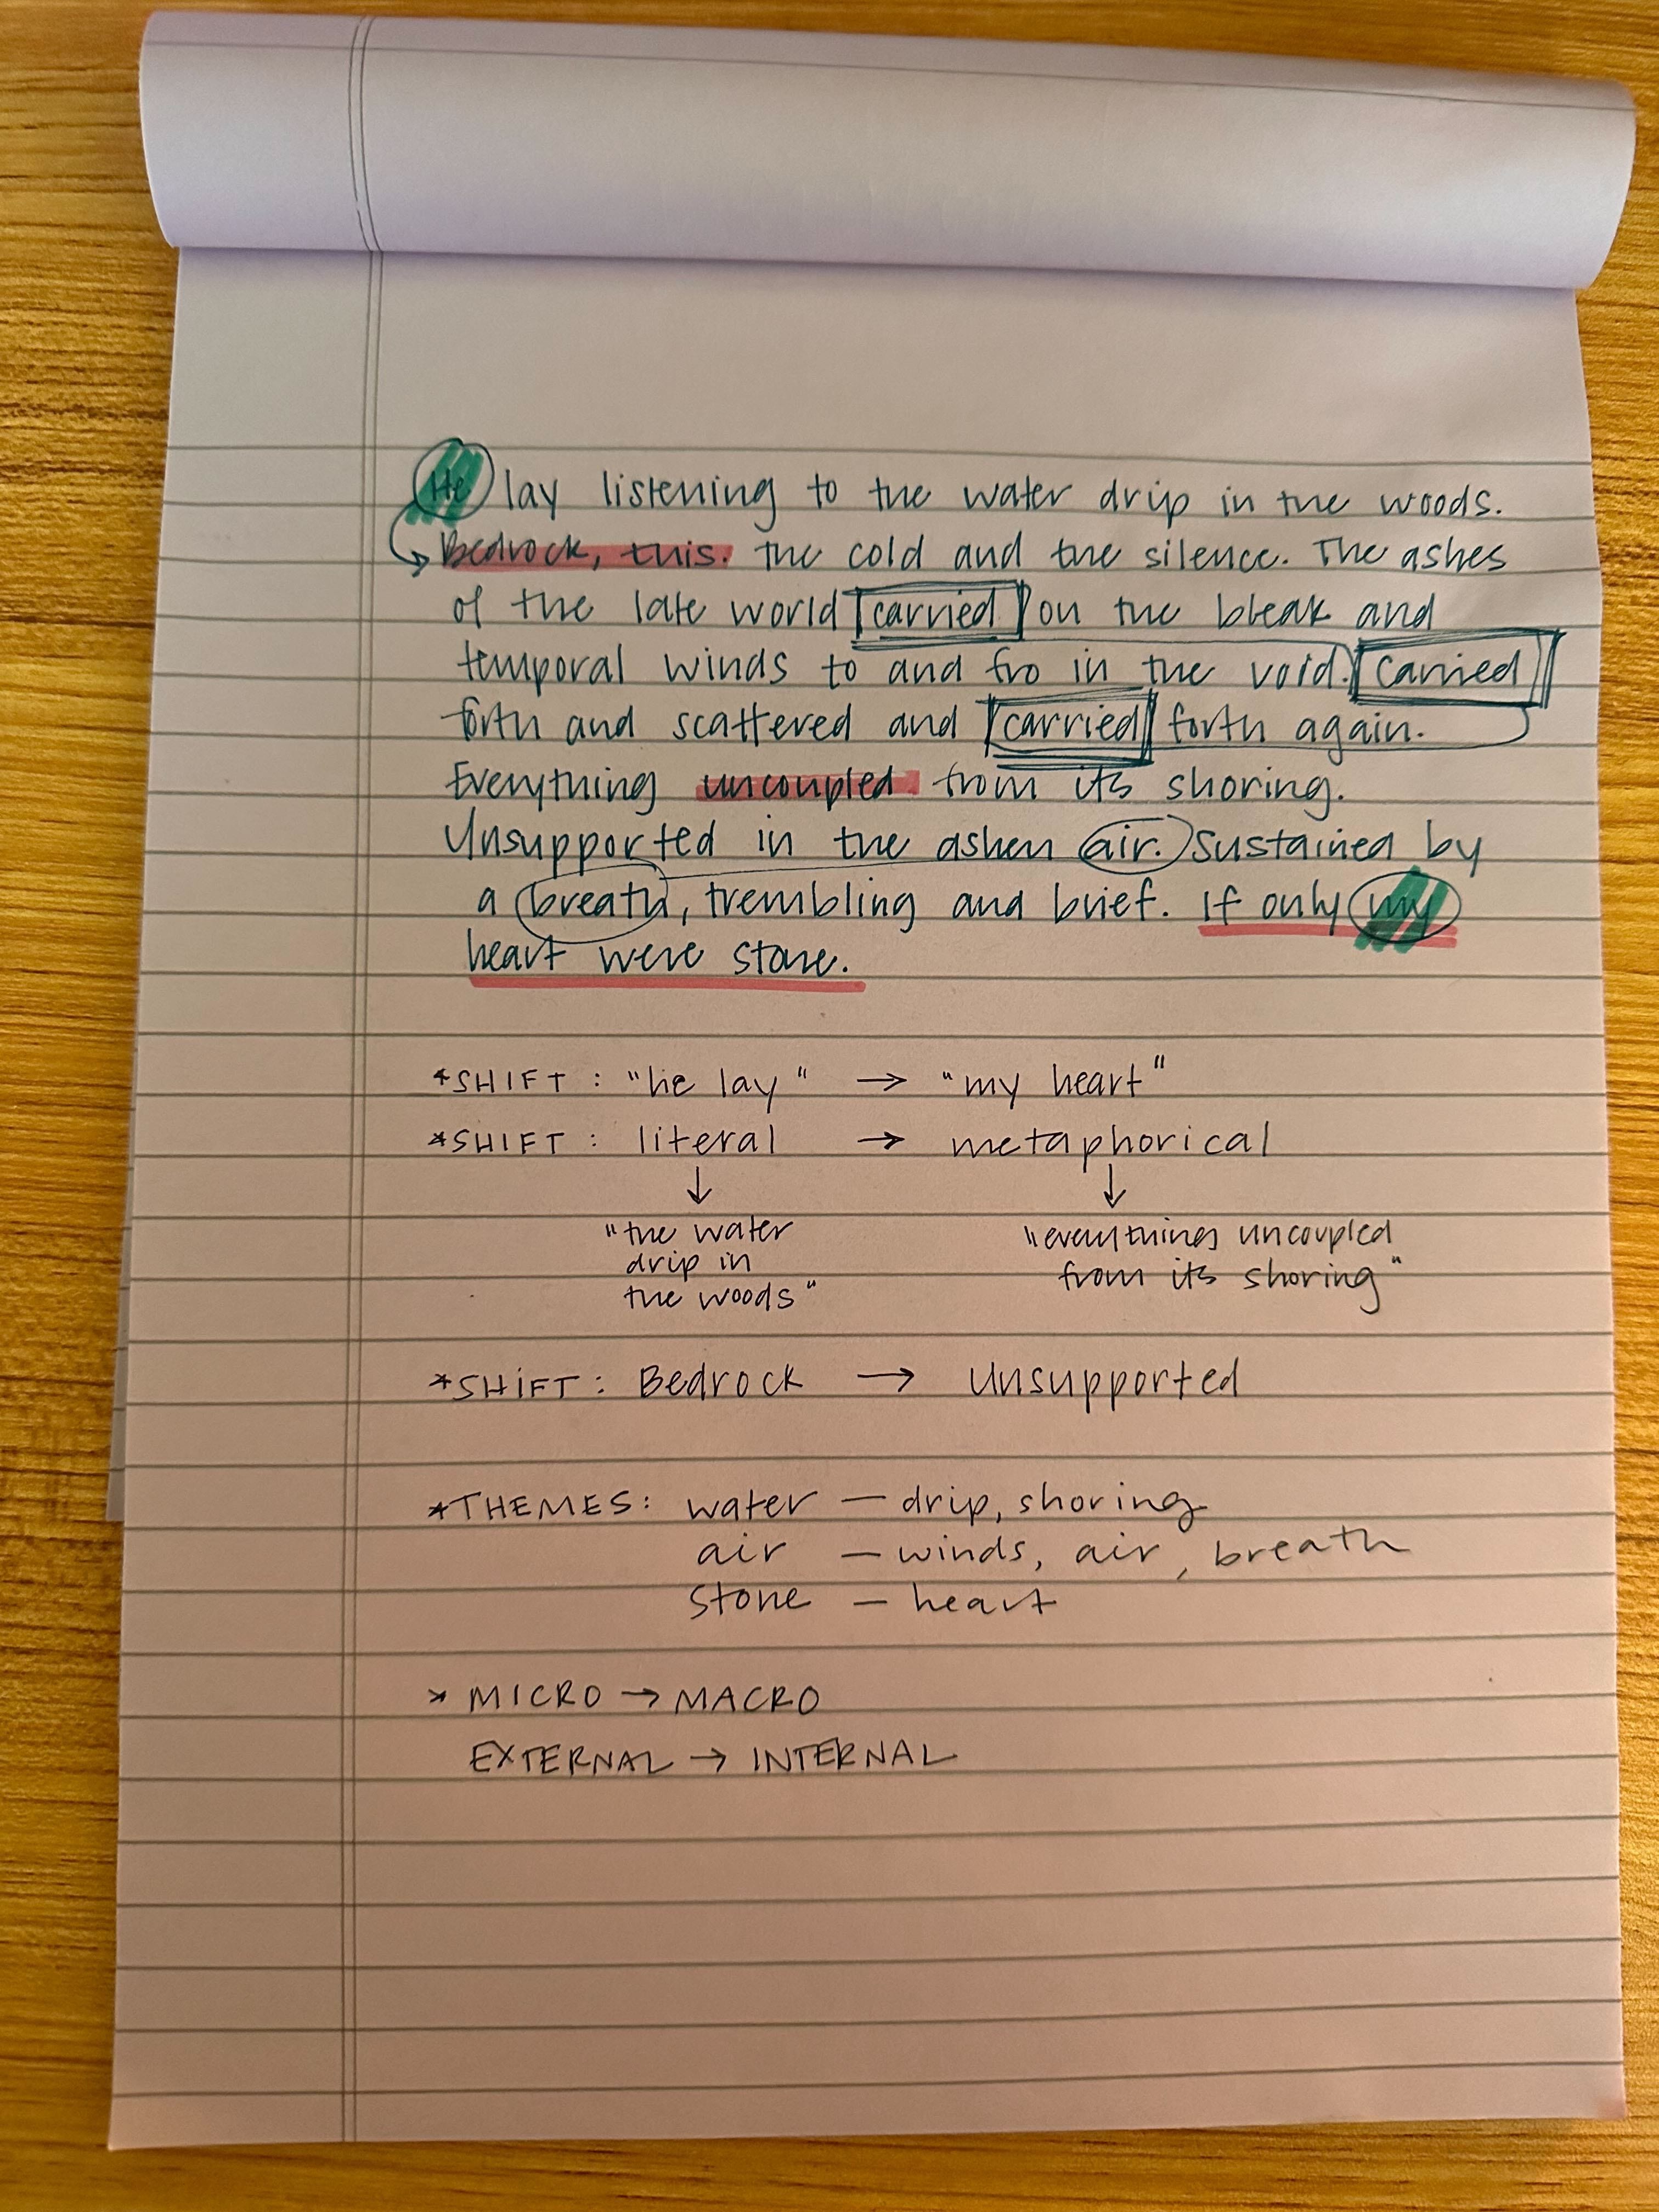 He lay listening to the water drip in the woods.
Bedrock, this. The cold and the silence. The ashes
of the late world carried on the bleak and
temporal winds to and fro in the void. Carried
forth and scattered and carried forth again.
Everything uncoupled from its shoring.
Unsupported in the ashen air. Sustained by
a breath, trembling and brief. If only my
heart were stone.
*SHIFT: "he lay" → "my heart"
*SHIFT: literal → metaphorical
↓ ↓
"the water
drip in
the woods"
"everything uncoupled
from its shoring"
*SHIFT: Bedrock → Unsupported
*THEMES: water — drip, shoring
air — winds, air, breath
stone — heart
* MICRO → MACRO
EXTERNAL → INTERNAL